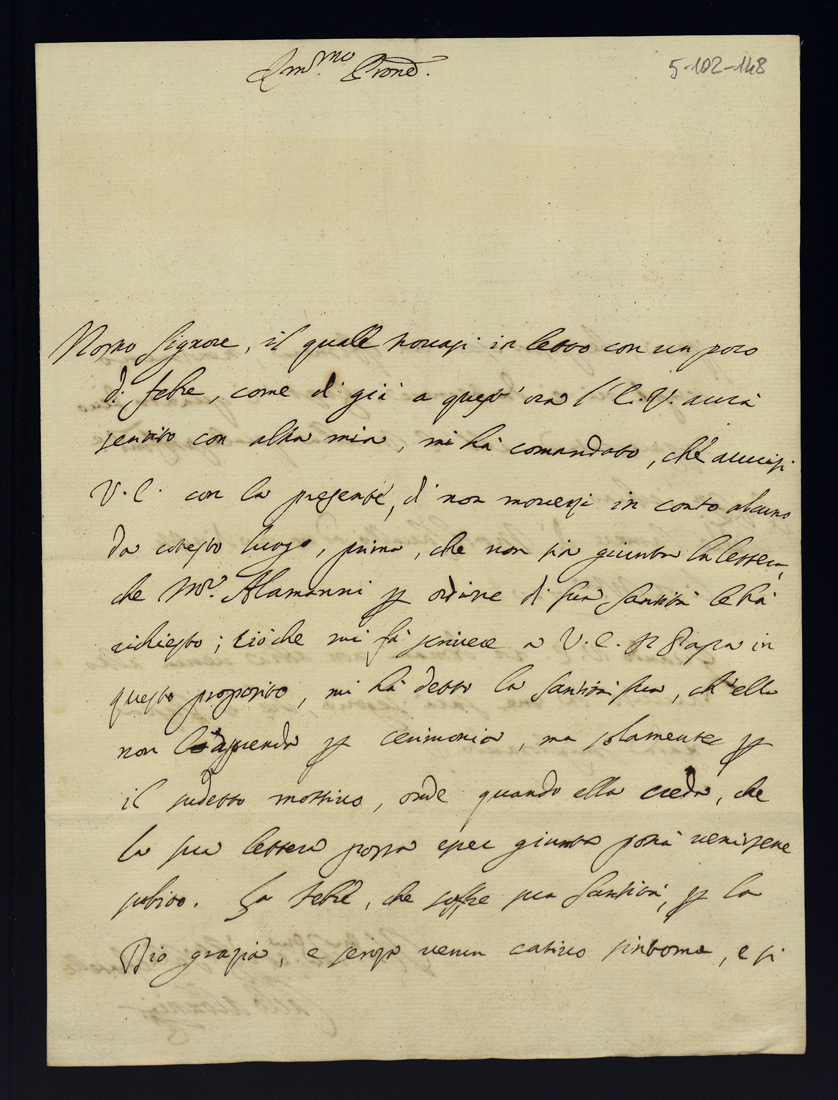 Em.mo Prone.
5-102-148
Nostro Signore, il quale trovasi in letto con un poco
di febre, come di già a quest' ora l' E. V. aurà
sentito con altra mia, mi hà comandato, che avvisi
V. E. con la presente, di non moversi in conto alcuno
da cotesto luogo, prima, che non sia giunta la lettera,
che Mor. Alamanni p ordine di sua Santità le hà
richiesto; ciò che mi fà scrivere a V. E. p staff.a in
questo proposito, mi hà detto la Santità sua, ch' ella
non l'attenda p cerimonia, ma solamente p
il sudetto mottivo, onde quando ella creda, che
la sua lettera possa esser giunta potrà venirsene
subito. La febre, che soffre sua Santità, p la
Dio grazia, e senza verun cativo sintoma, e si